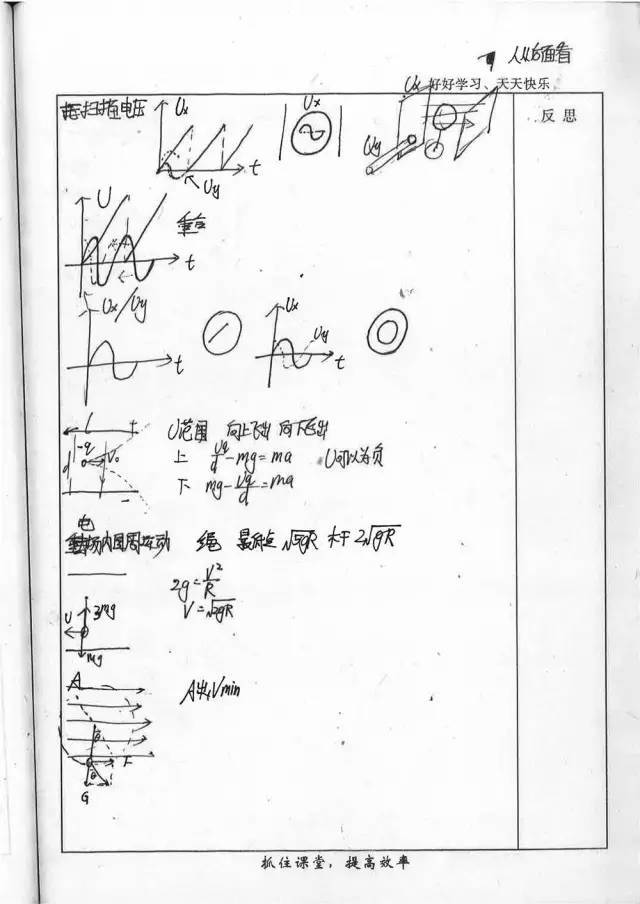 人从后面看
好好学习、天天快乐
Ux
反 思
扫描电压 Ux
Ux
Uy
t
Uy
U
重合
t
Ux/Uy
t
Ux
Uy
t
L
+
-q
V₀
d
-
U范围 向上飞出 向下飞出
上 Uq/d-mg=ma U可以为负
下 mg-Uq/d=ma
电场内圆周运动 绳 最低点 √5gR 杆 2√gR
2g=V²/R
V=√2gR
U
3mg
mg
A
A处Vmin
θ
F
G
抓住课堂，提高效率